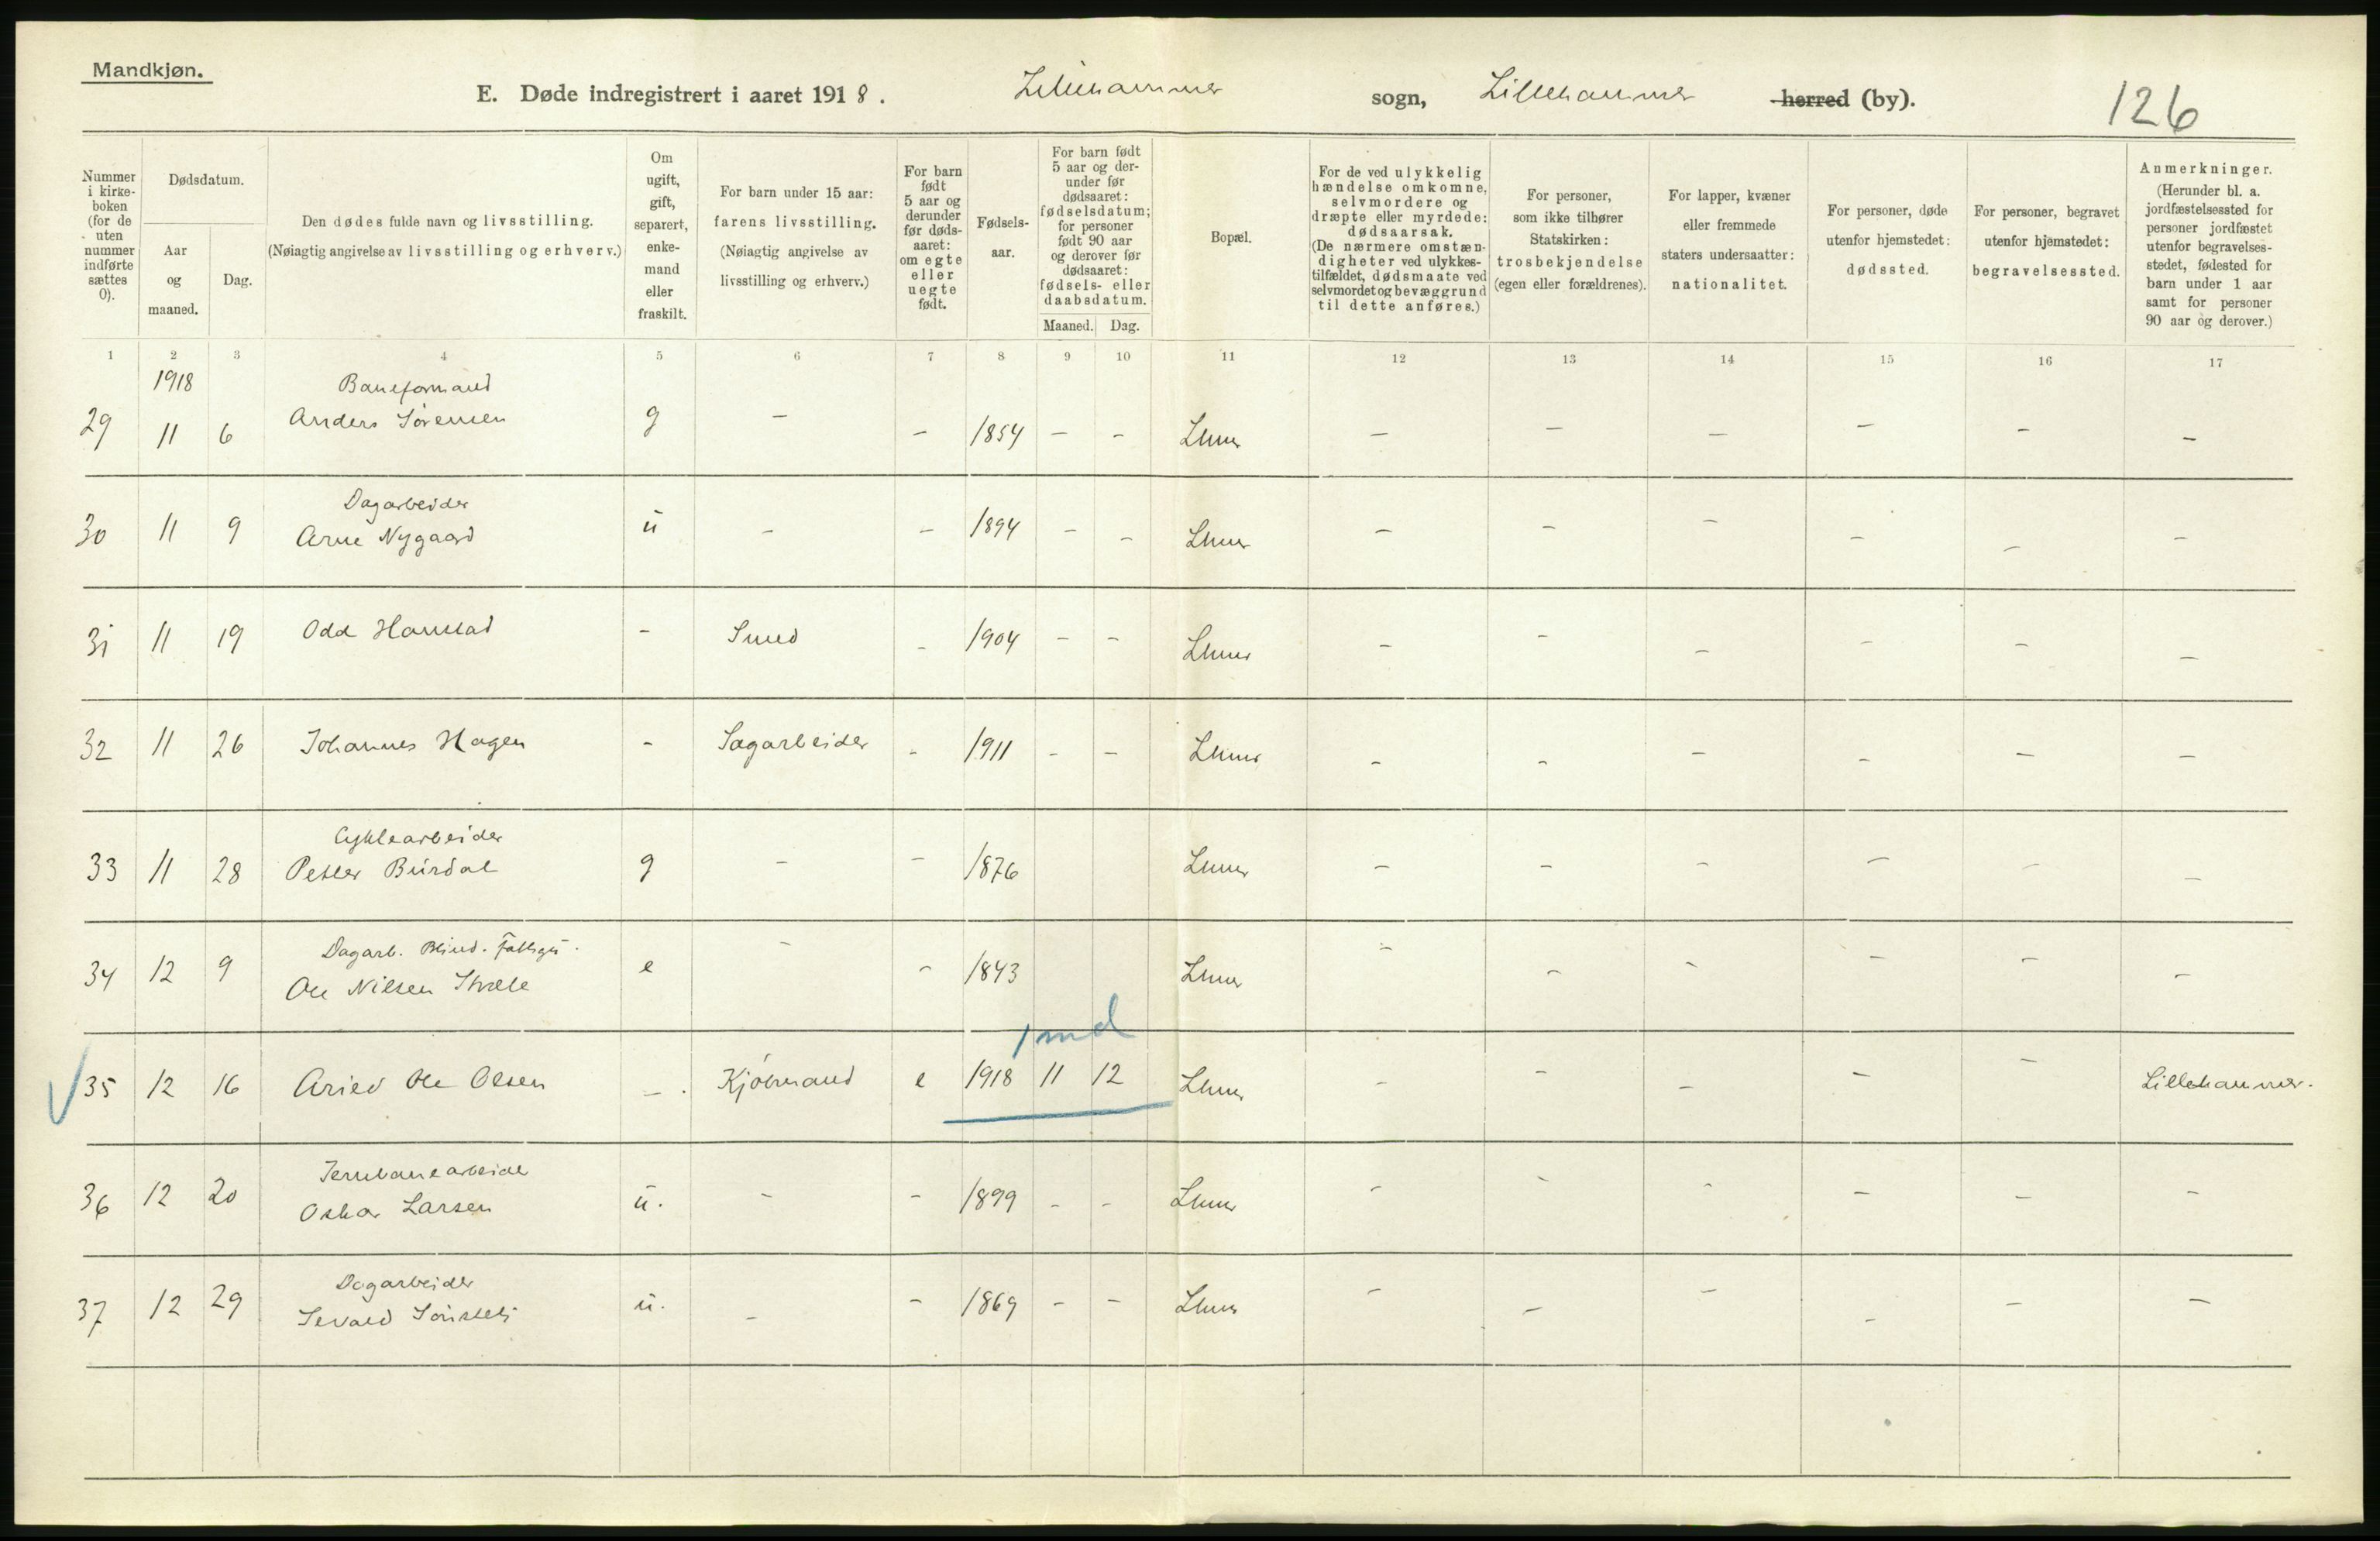 Mandkjøn.
E. Døde indregistrert i aaret 1918. Lillehammer sogn, Lillehammer herred (by). 126
Nummer i kirkeboken (for de uten nummer indførte sættes 0).
Dødsdatum.
Aar og maaned.
Dag.
Den dødes fulde navn og livsstilling.
(Nøiagtig angivelse av livsstilling og erhverv.)
Om ugift, gift, separert, enkemand eller fraskilt.
For barn under 15 aar:
farens livsstilling.
(Nøiagtig angivelse av livsstilling og erhverv.)
For barn født 5 aar og derunder før dødsaaret: om egte eller uegte født.
Fødselsaar.
For barn født 5 aar og derunder før dødsaaret: fødselsdatum; for personer født 90 aar og derover før dødsaaret: fødsels- eller daabsdatum.
Maaned. Dag.
Bopæl.
For de ved ulykkelig hændelse omkomne, selvmordere og dræpte eller myrdede: dødsaarsak.
(De nærmere omstændigheter ved ulykkestilfældet, dødsmaate ved selvmordet og bevæggrund til dette anføres.)
For personer, som ikke tilhører Statskirken: trosbekjendelse (egen eller forældrenes).
For lapper, kvæner eller fremmede staters undersaatter: nationalitet.
For personer, døde utenfor hjemstedet: dødssted.
For personer, begravet utenfor hjemstedet: begravelsessted.
Anmerkninger.
(Herunder bl. a. jordfæstelsessted for personer jordfæstet utenfor begravelsesstedet, fødested for barn under 1 aar samt for personer 90 aar og derover.)
1 2 3 4 5 6 7 8 9 10 11 12 13 14 15 16 17
1918 Baneformand
29 11 6 Anders Sørensen g - - 1854 - - Lhmr - - - - - -
Dagarbeider
30 11 9 Arne Nygaard u - - 1894 - - Lhmr - - - - - -
31 11 19 Odd - Smed - 1904 - - Lhmr - - - - - -
32 11 26 Johannes Hagen - Sagarbeider - 1911 - - Lhmr - - - - - -
Cyklearbeider
33 11 28 Petter Burdal g - - 1876 Lhmr - - - - - -
Dagarb. Blind.
34 12 9 Ole Nilsen e - - 1843 Lhmr - - - - - -
1 md
35 12 16 Ole Olsen - Kjøbmand e 1918 11 12 Lhmr - - - - - Lillehammer.
Jernbanearbeider
36 12 20 Oskar Larsen u. - - 1899 - - Lhmr - - - - - -
Dagarbeider
37 12 29 u. - - 1869 - - Lhmr - - - - - -